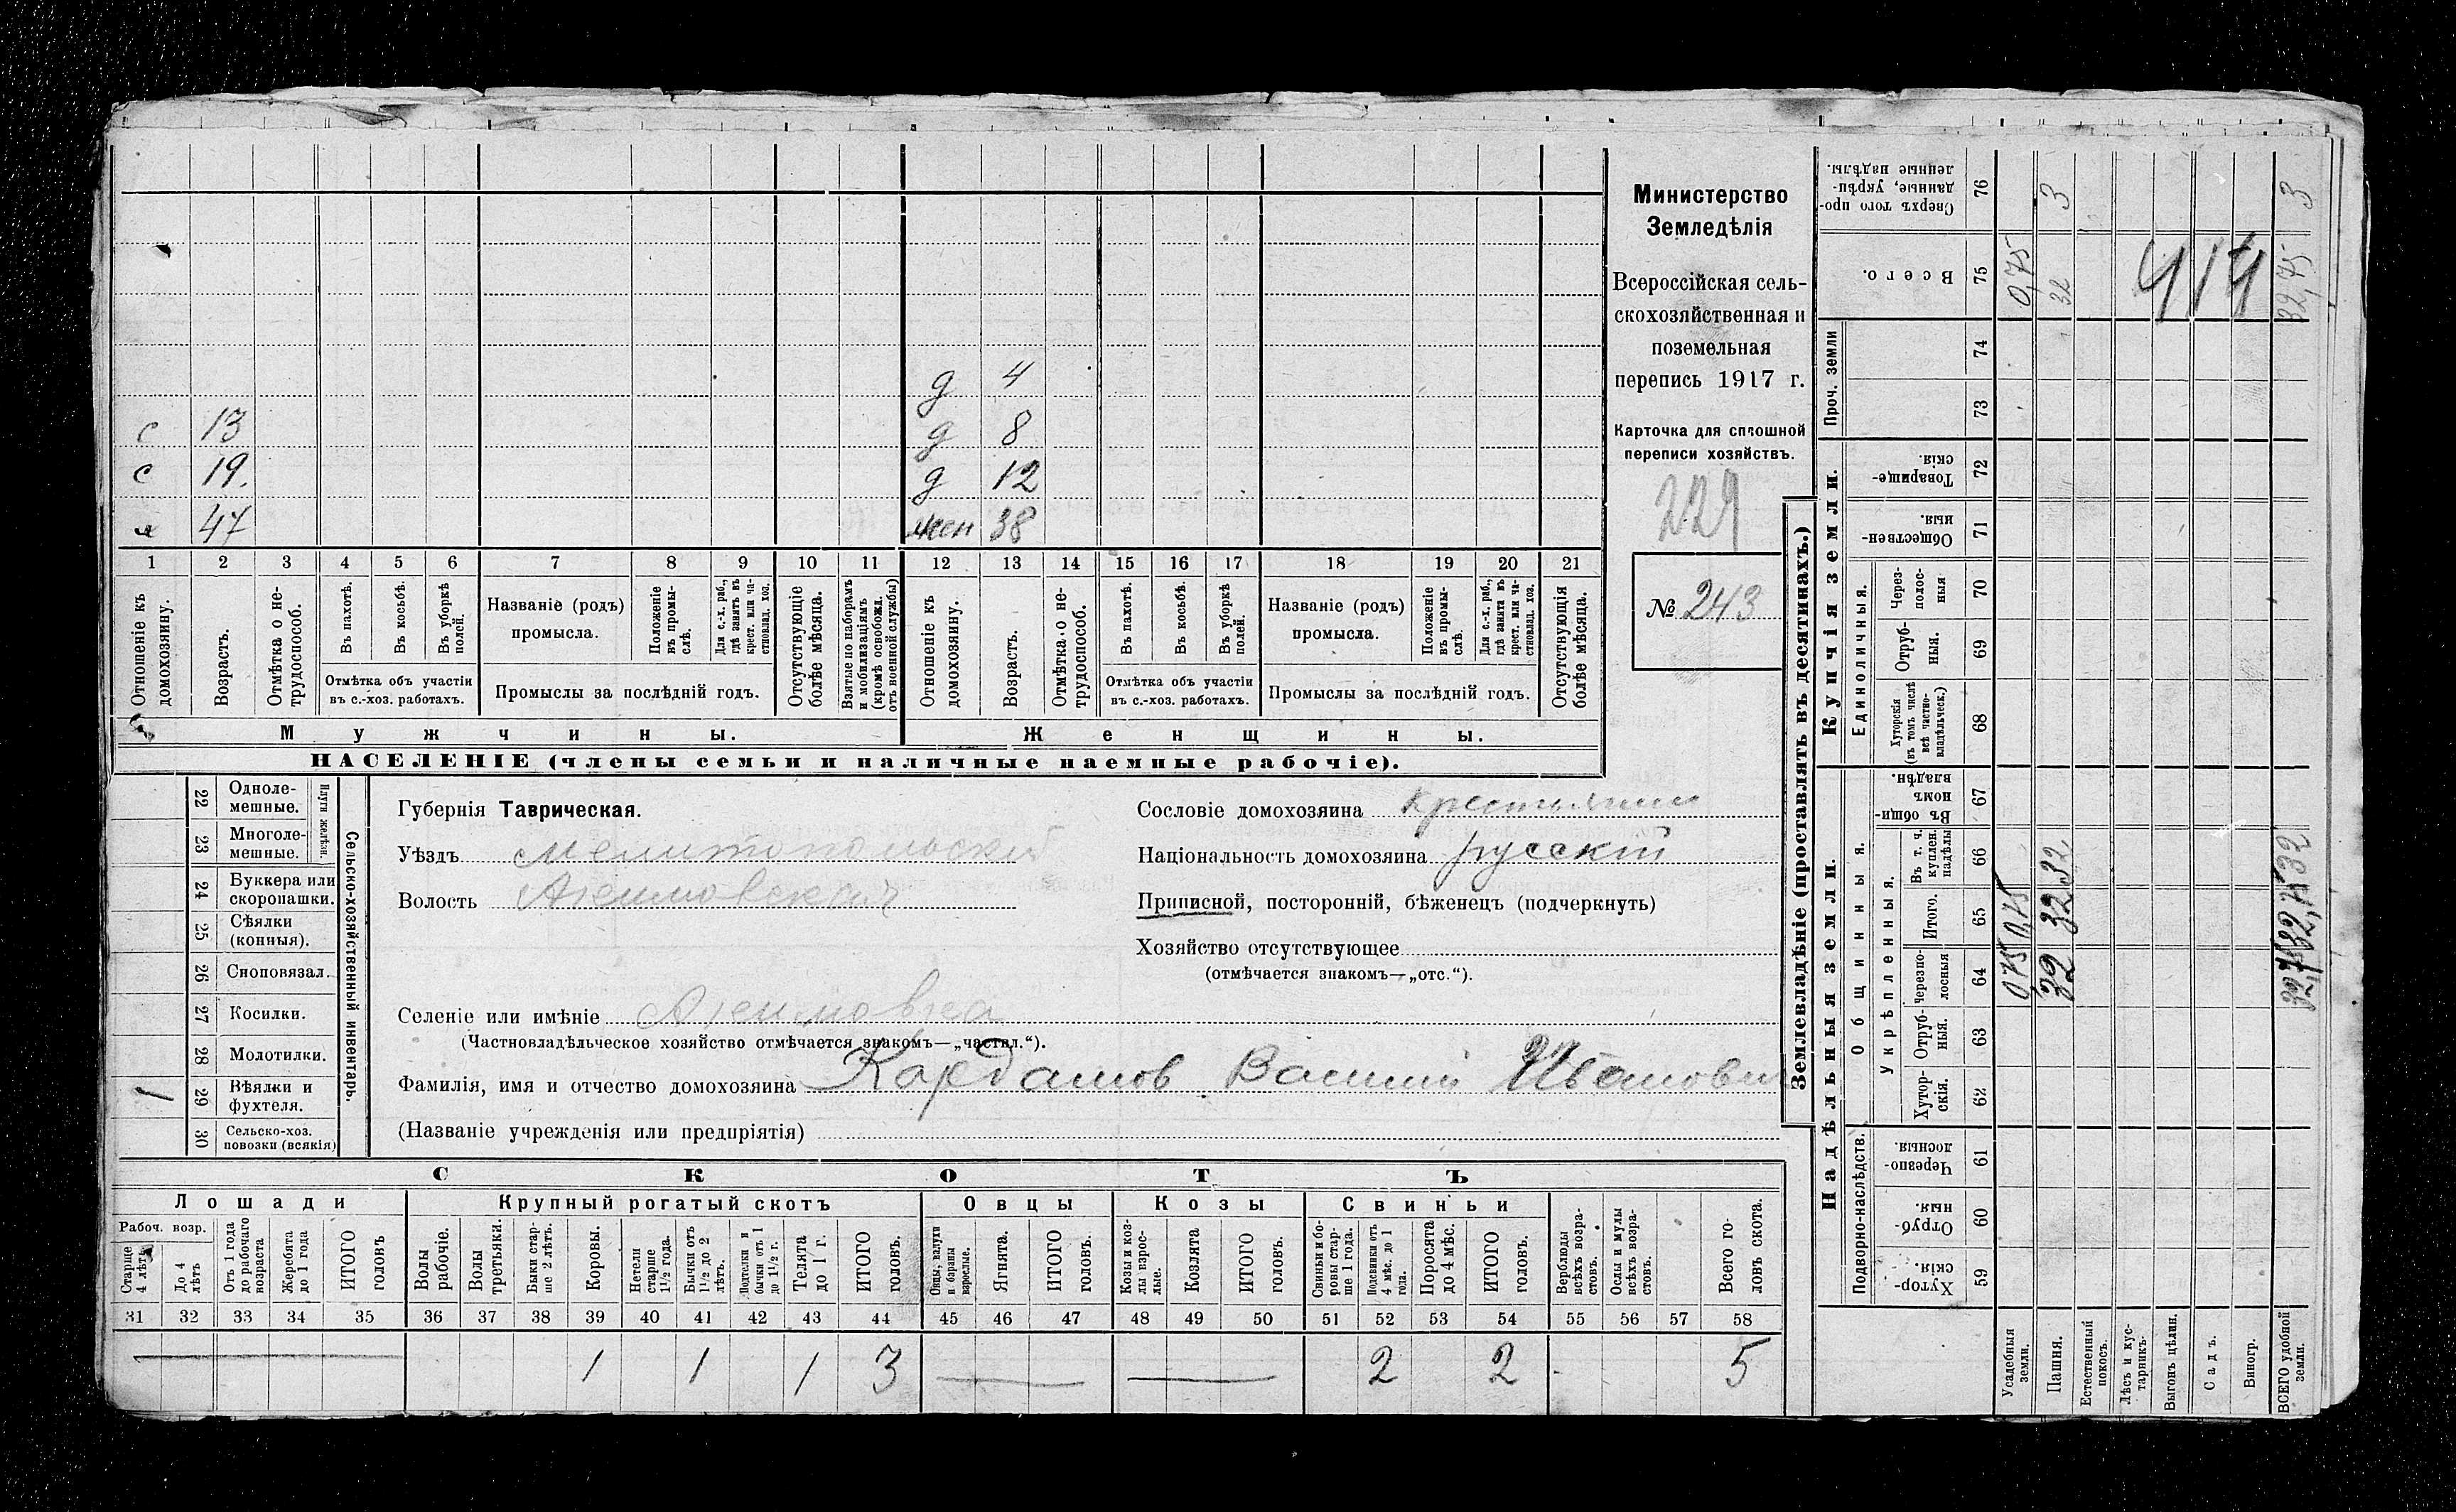 Министерство
Земледѣлія
Всероссійская сель-
скохозяйственная и
поземельная
перепись 1917 г.
Карточка для сплошной
переписи хозяйствъ.
229
№ 243
д 4
с 13 д 8
с 19. д 12
х 47 жен 38
1 2 3 4 5 6 7 8 9 10 11 12 13 14 15 16 17 18 19 20 21
Отношеніе къ домохозяину.
Возрастъ.
Отмѣтка о не-трудоспособ.
Въ пахотѣ.
Въ косьбѣ.
Въ уборкѣ полей.
Отмѣтка объ участіи
въ с.-хоз. работахъ.
Названіе (родъ)
промысла.
Положеніе въ промы-слѣ.
Для с.-х. раб., гдѣ занятъ въ крест. или ча-стновлад. хоз.
Промыслы за послѣдній годъ.
Отсутствующіе болѣе мѣсяца.
Взятые по наборамъ и мобилизаціямъ (кромѣ освобожд. отъ военной службы)
Отношеніе къ домохозяину.
Возрастъ.
Отмѣтка о не-трудоспособ.
Въ пахотѣ.
Въ косьбѣ.
Въ уборкѣ полей.
Отмѣтка объ участіи
въ с.-хоз. работахъ.
Названіе (родъ)
промысла.
Положеніе въ промы-слѣ.
Для с.-х. раб., гдѣ занята въ крест. или ча-стновлад. хоз.
Промыслы за послѣдній годъ.
Отсутствующія болѣе мѣсяца.
Мужчины. Женщины.
НАСЕЛЕНІЕ (члены семьи и наличные наемные рабочіе).
22 Одноле-мешные.
23 Многоле-мешные.
Плуги желѣзн.
24 Буккера или скоропашки.
25 Сѣялки (конныя).
26 Сноповязал.
27 Косилки.
28 Молотилки.
1 29 Вѣялки и фухтеля.
30 Сельско-хоз. повозки (всякія)
Сельско-хозяйственный инвентарь.
Губернія Таврическая.
Уѣздъ Мелитопольскій
Волость Акимовская
Селеніе или имѣніе Акимовка
(Частновладѣльческое хозяйство отмѣчается знакомъ—„частвл.“).
Фамилія, имя и отчество домохозяина Кардашов Василій Иванович
(Названіе учрежденія или предпріятія)
Сословіе домохозяина крестьянин
Національность домохозяина русскій
Приписной, посторонній, бѣженецъ (подчеркнуть)
Хозяйство отсутствующее
(отмѣчается знакомъ—„отс.“).
СКОТЪ
Лошади Крупный рогатый скотъ Овцы Козы Свиньи
Рабоч. возр.
Старше 4 лѣтъ
До 4 лѣтъ
Отъ 1 года до рабочаго возраста
Жеребята до 1 года
ИТОГО головъ
Волы рабочіе.
Волы третьяки.
Быки стар-ше 2 лѣтъ.
Коровы.
Нетели старше 1½ года.
Бычки отъ 1½ до 2 лѣтъ.
Подтелки и бычки отъ 1 до 1½ г.
Телята до 1 г.
ИТОГО головъ.
Овцы, валухи и бараны взрослые.
Ягнята.
ИТОГО головъ.
Козы и коз-лы взрос-лые.
Козлята
ИТОГО головъ.
Свиньи и бо-ровы стар-ше 1 года.
Подсвинки отъ 4 мѣс. до 1 года.
Поросята до 4 мѣс.
ИТОГО головъ.
Верблюды всѣхъ возра-стовъ.
Ослы и мулы всѣхъ возра-стовъ.
Всего го-ловъ скота.
31 32 33 34 35 36 37 38 39 40 41 42 43 44 45 46 47 48 49 50 51 52 53 54 55 56 57 58
1 1 1 3 2 2 5
Землевладѣніе (проставлять въ десятинахъ.)
Купчія земли.
Надѣльныя земли.
Проч. земли
Единоличныя.
Общинныя.
Укрѣпленныя.
Подворно-наслѣдств.
Сверхъ того про-данные, укрѣп-ленные надѣлы. 76
Всего. 75
74
73
Товарище-скія. 72
Обществен-ныя. 71
Через-полос-ныя 70
Отруб-ныя. 69
Хуторскія (въ томъ числѣ всѣ частно-владѣльческ.) 68
Въ общи-номъ владѣн. 67
Въ т. ч. куплен. надѣлы 66
Итого. 65
Черезпо-лосныя 64
Отруб-ныя. 63
Хутор-скія. 62
Черезпо-лосныя. 61
Отруб-ныя. 60
Хутор-скія. 59
Усадебныя земли. 0,75 0,75 0,75
Пашня. 32 32 32 32 3
Естественный покосъ.
Лѣсъ и кус-тарникъ.
Выгонъ цѣлин.
Садъ.
Виногр.
ВСЕГО удобной земли. 32,75 32,75 32 32,75 3
414